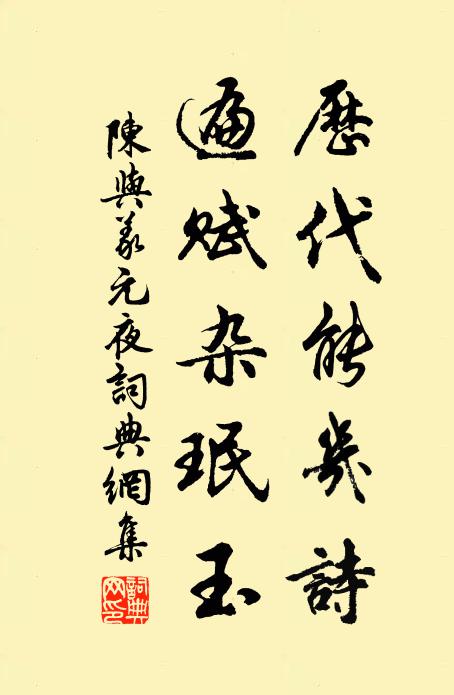 歷代能幾詩
遍賦杂珉玉
陳與義元夜詞典網集
詞典網印